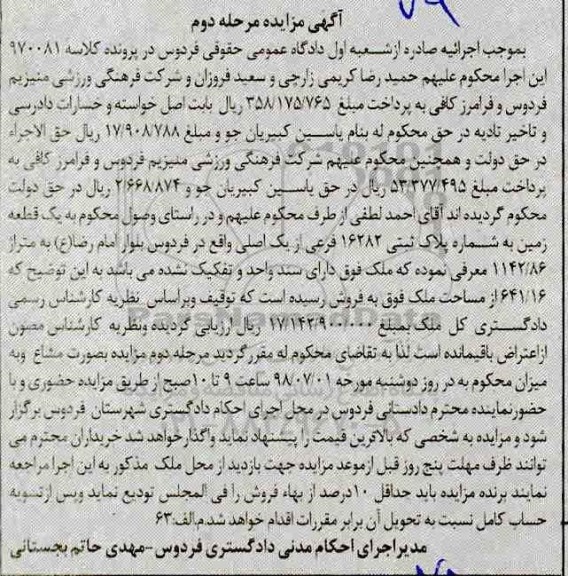 آگهی مزایده مرحله دوم
بموجب اجرائیه صادره ازشعبه اول دادگاه عمومی حقوقی فردوس در پرونده کلاسه ۹۷۰۰۸۱
این اجرا محکوم علیهم حمید رضا کریمی زارچی و سعید فروزان و شرکت فرهنگی ورزشی منیزیم
فردوس و فرامرز کافی به پرداخت مبلغ ۳۵۸/۱۷۵/۷۶۵ ریال بابت اصل خواسته و خسارات دادرسی
و تاخیر تادیه در حق محکوم له بنام یاسین کبیریان جو و مبلغ ۱۷/۹۰۸/۷۸۸ ریال حق الاجراء
در حق دولت و همچنین محکوم علیهم شرکت فرهنگی ورزشی منیزیم فردوس و فرامرز کافی به
پرداخت مبلغ ۵۳/۳۷۷/۴۹۵ ریال در حق یاسین کبیریان جو و ۲/۶۶۸/۸۷۴ ریال در حق دولت
محکوم گردیده اند آقای احمد لطفی از طرف محکوم علیهم و در راستای وصول محکوم به یک قطعه
زمین به شماره پلاک ثبتی ۱۶۲۸۲ فرعی از یک اصلی واقع در فردوس بلوار امام رضا(ع) به متراژ
۱۱۴۲/۸۶ معرفی نموده که ملک فوق دارای سند واحد و تفکیک نشده می باشد به این توضیح که
۶۴۱/۱۶ از مساحت ملک فوق به فروش رسیده است که توقیف وبراساس نظریه کارشناس رسمی
دادگستری کل ملک بمبلغ ۱۷/۱۴۲/۹۰۰/۰۰۰ ریال ارزیابی گردیده ونظریه کارشناس مصون
ازاعتراض باقیمانده است لذا به تقاضای محکوم له مقرر گردید مرحله دوم مزایده بصورت مشاع وبه
میزان محکوم به در روز دوشنبه مورخه ۹۸/۰۷/۰۱ ساعت ۹ تا ۱۰صبح از طریق مزایده حضوری و با
حضورنماینده محترم دادستانی فردوس در محل اجرای احکام دادگستری شهرستان فردوس برگزار
شود و مزایده به شخصی که بالاترین قیمت را پیشنهاد نماید واگذار خواهد شد خریداران محترم می
توانند ظرف مهلت پنج روز قبل ازموعد مزایده جهت بازدید از محل ملک مذکور به این اجرا مراجعه
نمایند برنده مزایده باید حداقل ۱۰درصد از بهاء فروش را فی المجلس تودیع نماید وپس ازتسویه
حساب کامل نسبت به تحویل آن برابر مقررات اقدام خواهد شد.م.الف:۶۳
مدیر اجرای احکام مدنی دادگستری فردوس-مهدی حاتم بجستانی